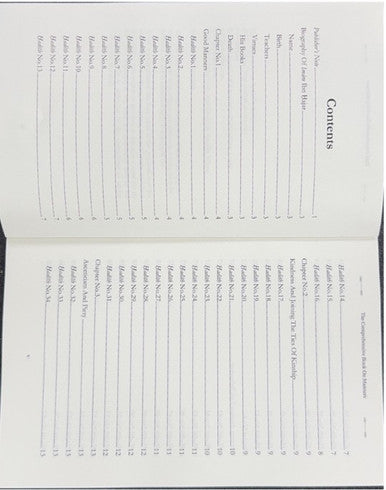 Contents
Publisher's Note ........ 1
Biography Of Imām Ibn Hajar ........ 3
Name ........ 3
Birth ........ 3
Teachers ........ 3
Virtues ........ 3
His Books ........ 3
Death ........ 3
Chapter No.1
Good Manners
Hadith No.1 ........ 4
Hadith No.2 ........ 4
Hadith No.3 ........ 4
Hadith No.4
Hadith No.5 ........ 5
Hadith No.6 ........ 5
Hadith No.7
Hadith No.8
Hadith No.9 ........ 6
Hadith No.10 ........ 6
Hadith No.11 ........ 6
Hadith No.12 ........ 7
Hadith No.13 ........ 7
The Comprehensive Book On Manners
Hadith No.14 ........ 7
Hadith No.15 ........ 7
Hadith No.16 ........ 8
Chapter No.2 ........ 9
Kindness And Joining The Ties Of Kinship ........ 9
Hadith No.17 ........ 9
Hadith No.18 ........ 9
Hadith No.19 ........ 9
Hadith No.20 ........ 9
Hadith No.21 ........ 10
Hadith No.22 ........ 10
Hadith No.23 ........ 10
Hadith No.24 ........ 11
Hadith No.25 ........ 11
Hadith No.26 ........ 11
Hadith No.27 ........ 11
Hadith No.28 ........ 12
Hadith No.29 ........ 12
Hadith No.30 ........ 12
Hadith No.31 ........ 12
Chapter No.3 ........ 13
Asceticism And Piety ........ 13
Hadith No.32 ........ 13
Hadith No.33
Hadith No.34